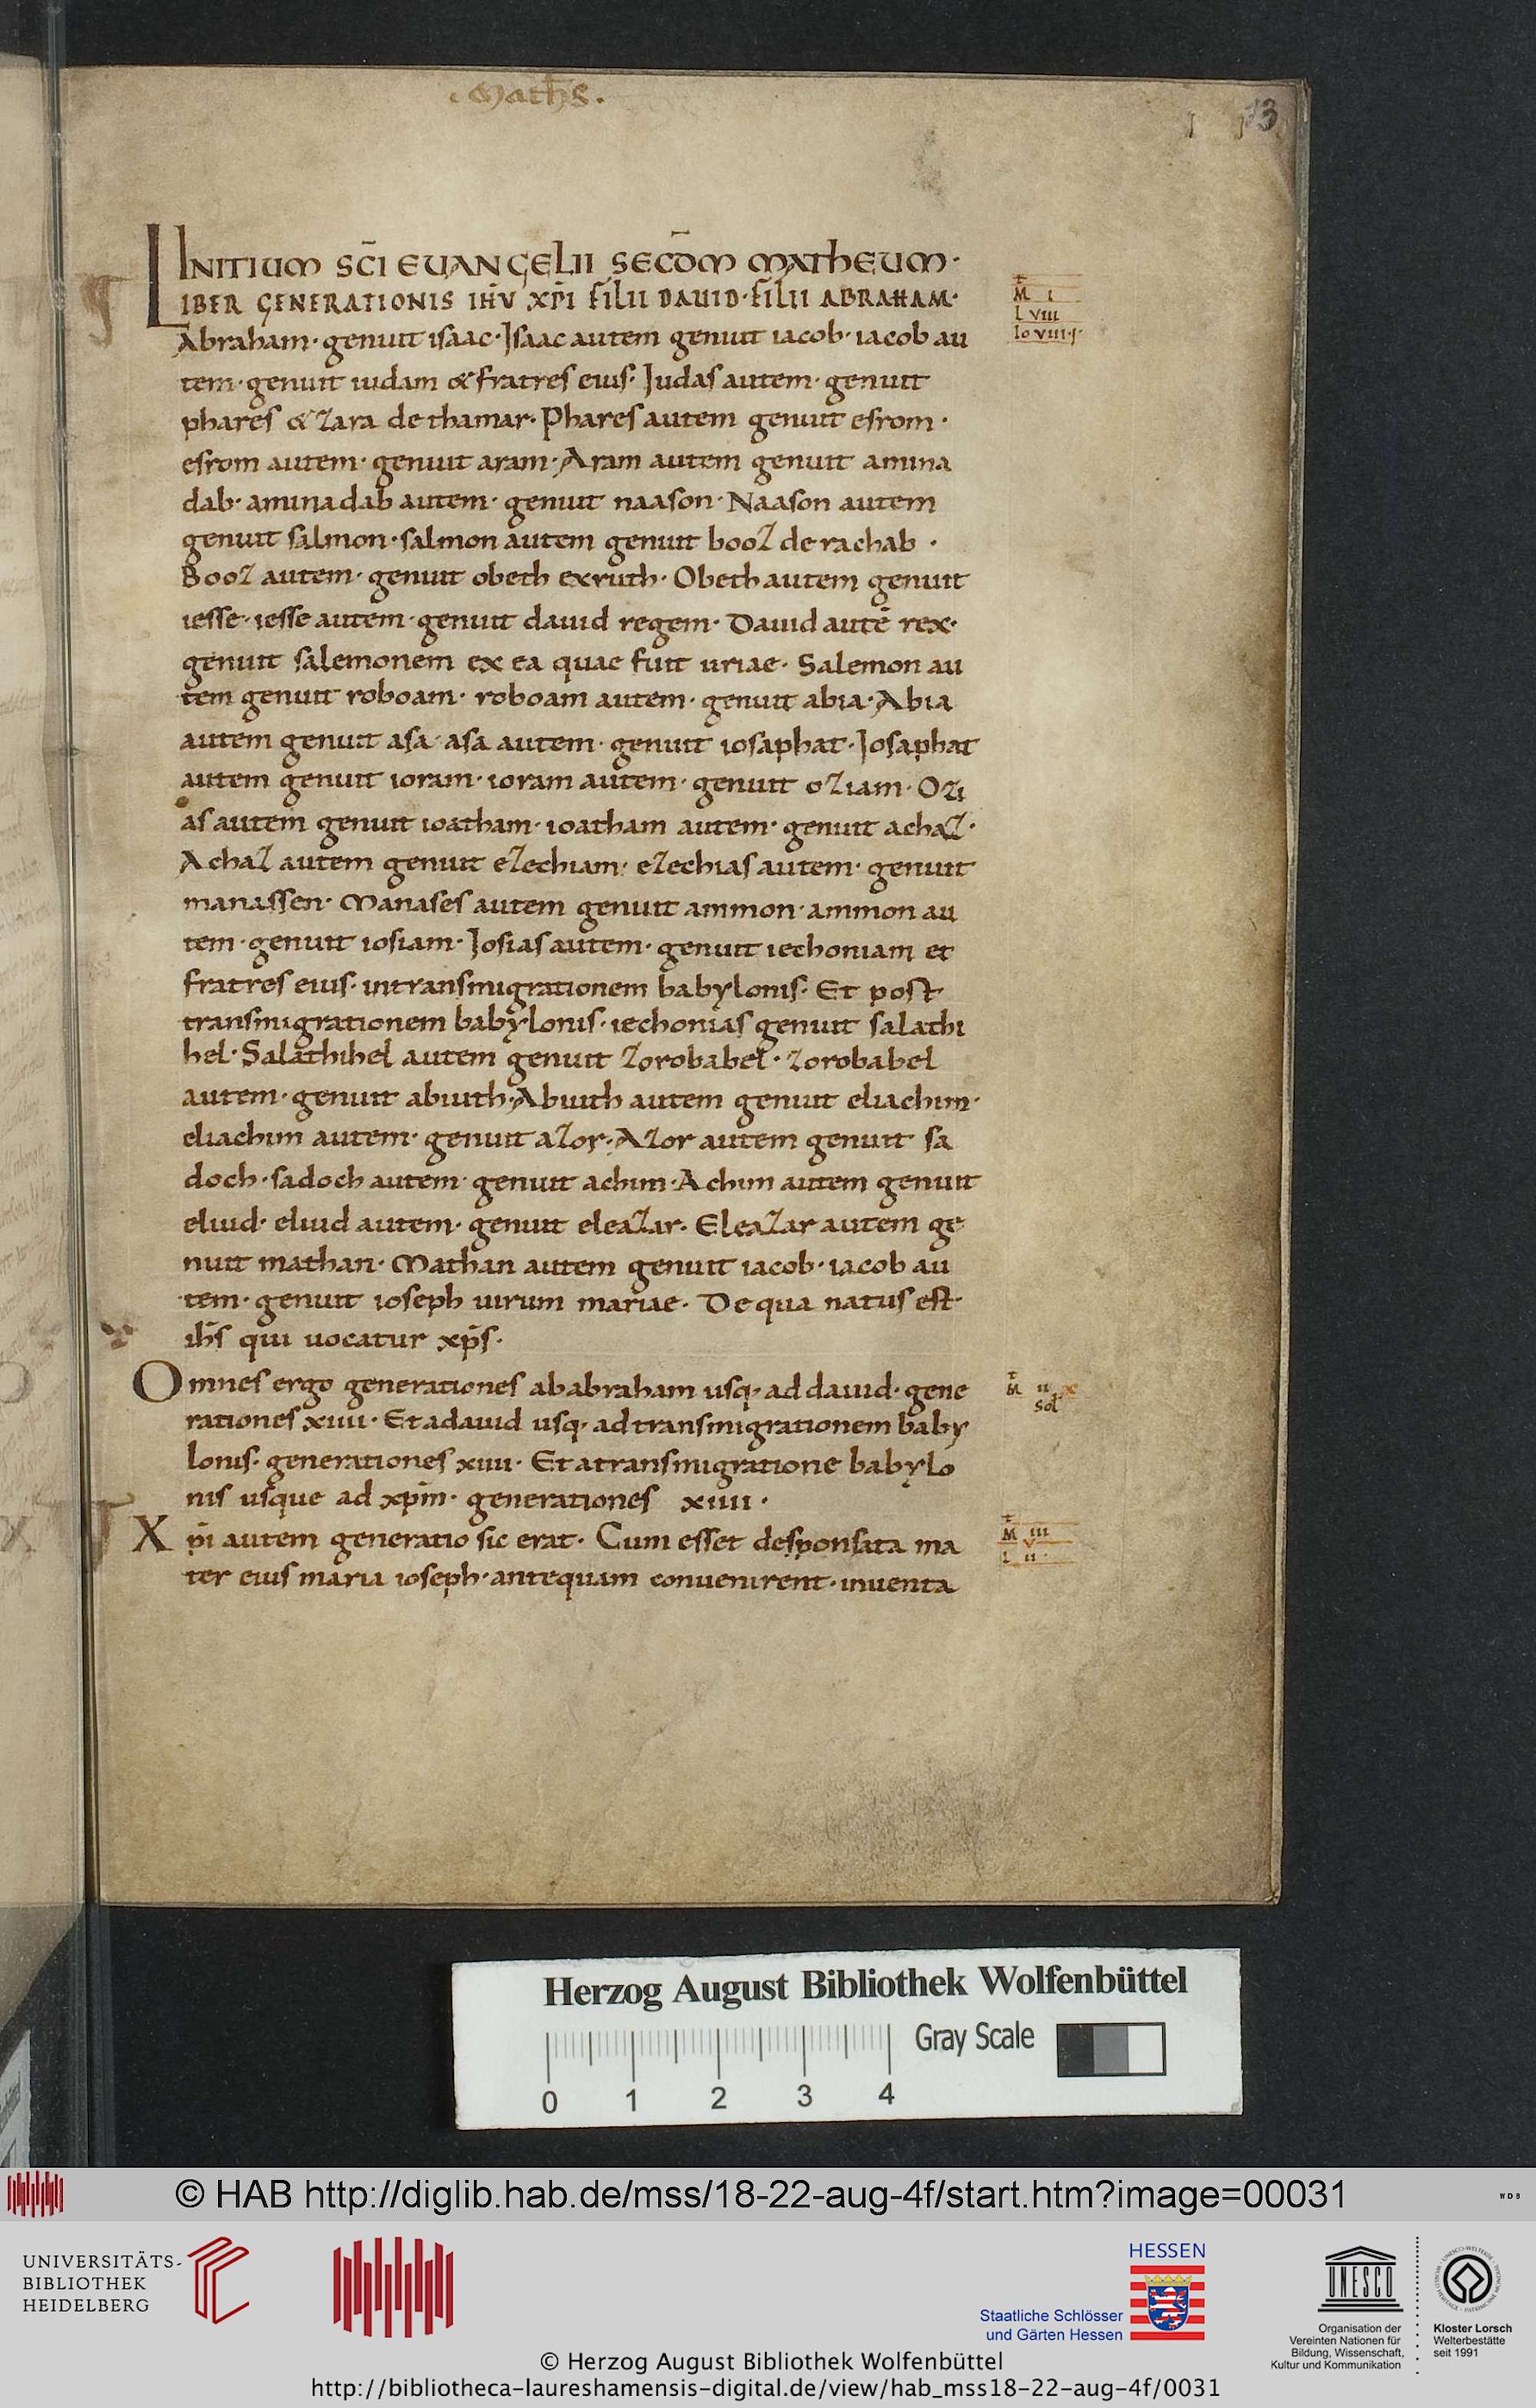 · Maths̄ ·
13
INITIUM SC̄I EUANGELII SECD̄M MATHEUM·
LIBER GENERATIONIS IHV̄ XP̄I FILII DAUID· FILII ABRAHAM·
M I
L VIII
Io VIII·
Abraham· genuit isaac· Isaac autem genuit iacob· iacob au
tem· genuit iudam & fratres eius· Judas autem· genuit
phares & zara de thamar· Phares autem genuit esrom·
esrom autem· genuit aram· Aram autem genuit amina
dab· aminadab autem· genuit naason· Naason autem
genuit salmon· salmon autem genuit booz de rachab ·
Booz autem· genuit obeth ex ruth· Obeth autem genuit
iesse· iesse autem· genuit dauid regem· Dauid autē rex·
genuit salemonem ex ea quae fuit uriae· Salemon au
tem genuit roboam· roboam autem· genuit abia· Abia
autem genuit asa· asa autem· genuit iosaphat· Josaphat
autem genuit ioram· ioram autem· genuit oziam· Ozi
as autem genuit ioatham· ioatham autem· genuit achaz·
Achaz autem genuit ezechiam· ezechias autem· genuit
manassen· Manases autem genuit ammon· ammon au
tem· genuit iosiam· Josias autem· genuit iechoniam et
fratres eius· in transmigrationem babylonis· Et post
transmigrationem babylonis· iechonias genuit salathi
hel· Salathihel autem genuit zorobabel· zorobabel
autem· genuit abiuth· Abiuth autem genuit eliachim·
eliachim autem· genuit azor· Azor autem genuit sa
doch· sadoch autem· genuit achim· Achim autem genuit
eliud· eliud autem· genuit eleazar· Eleazar autem ge
nuit mathan· Mathan autem genuit iacob· iacob au
tem· genuit ioseph uirum mariae· De qua natus est·
ih̄s qui uocatur xp̄s·
Omnes ergo generationes ab abraham usq· ad dauid· gene
M II X
sol
rationes xiiii· Et a dauid usq· ad transmigrationem baby
lonis· generationes xiiii· Et a transmigratione babylo
nis usque ad xpm̄· generationes xiiii·
Xp̄i autem generatio sic erat· Cum esset desponsata ma
M III V
L II·
ter eius maria ioseph· antequam conuenirent· inuenta
Herzog August Bibliothek Wolfenbüttel
Gray Scale
0 1 2 3 4
© HAB http://diglib.hab.de/mss/18-22-aug-4f/start.htm?image=00031
WDB
UNIVERSITÄTS-
BIBLIOTHEK
HEIDELBERG
HESSEN
Staatliche Schlösser
und Gärten Hessen
UNESCO
Organisation der
Vereinten Nationen für
Bildung, Wissenschaft,
Kultur und Kommunikation
Kloster Lorsch
Welterbestätte
seit 1991
© Herzog August Bibliothek Wolfenbüttel
http://bibliotheca-laureshamensis-digital.de/view/hab_mss18-22-aug-4f/0031